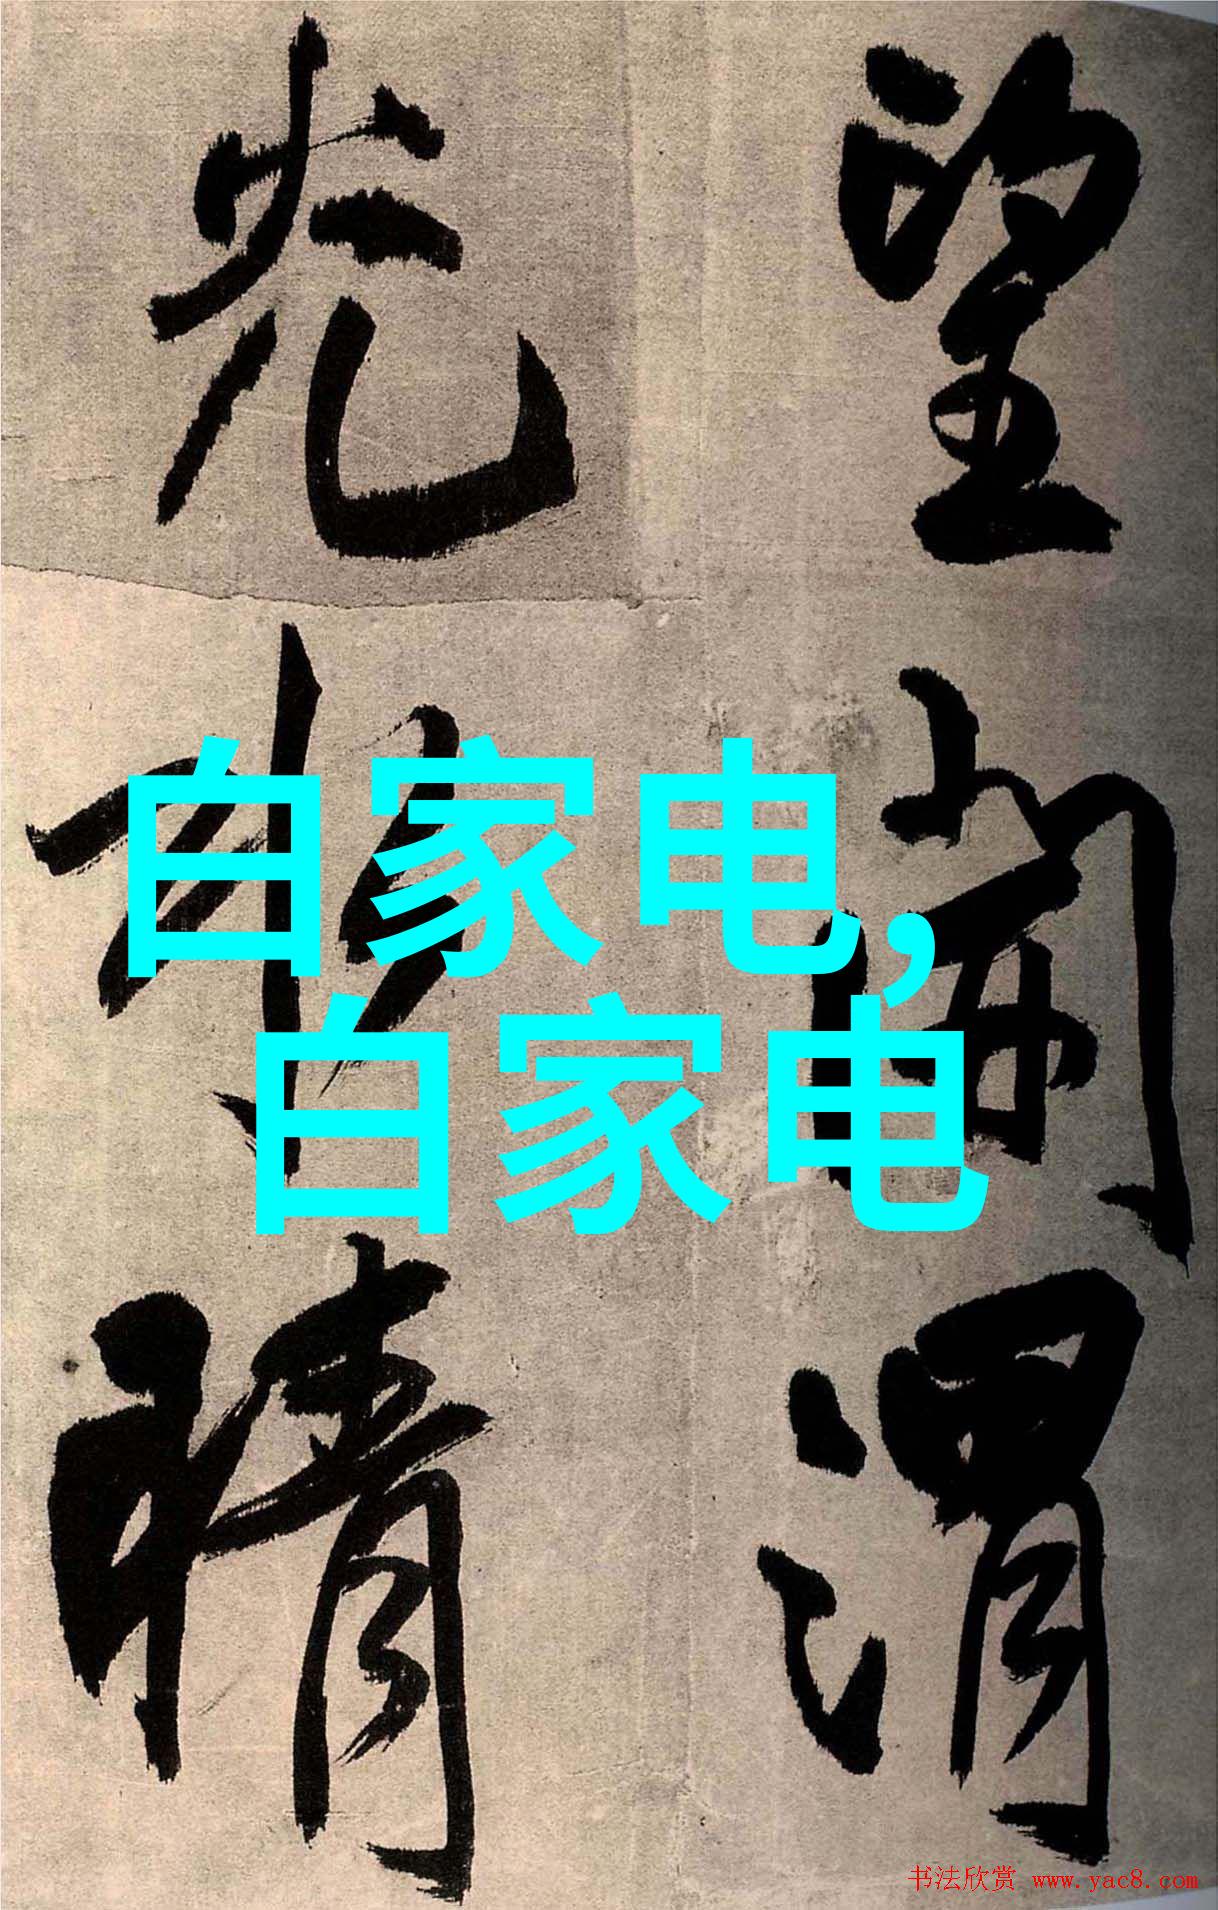 望開渭
光晴
白家电,
白家电
书法欣赏 www.yac8.com